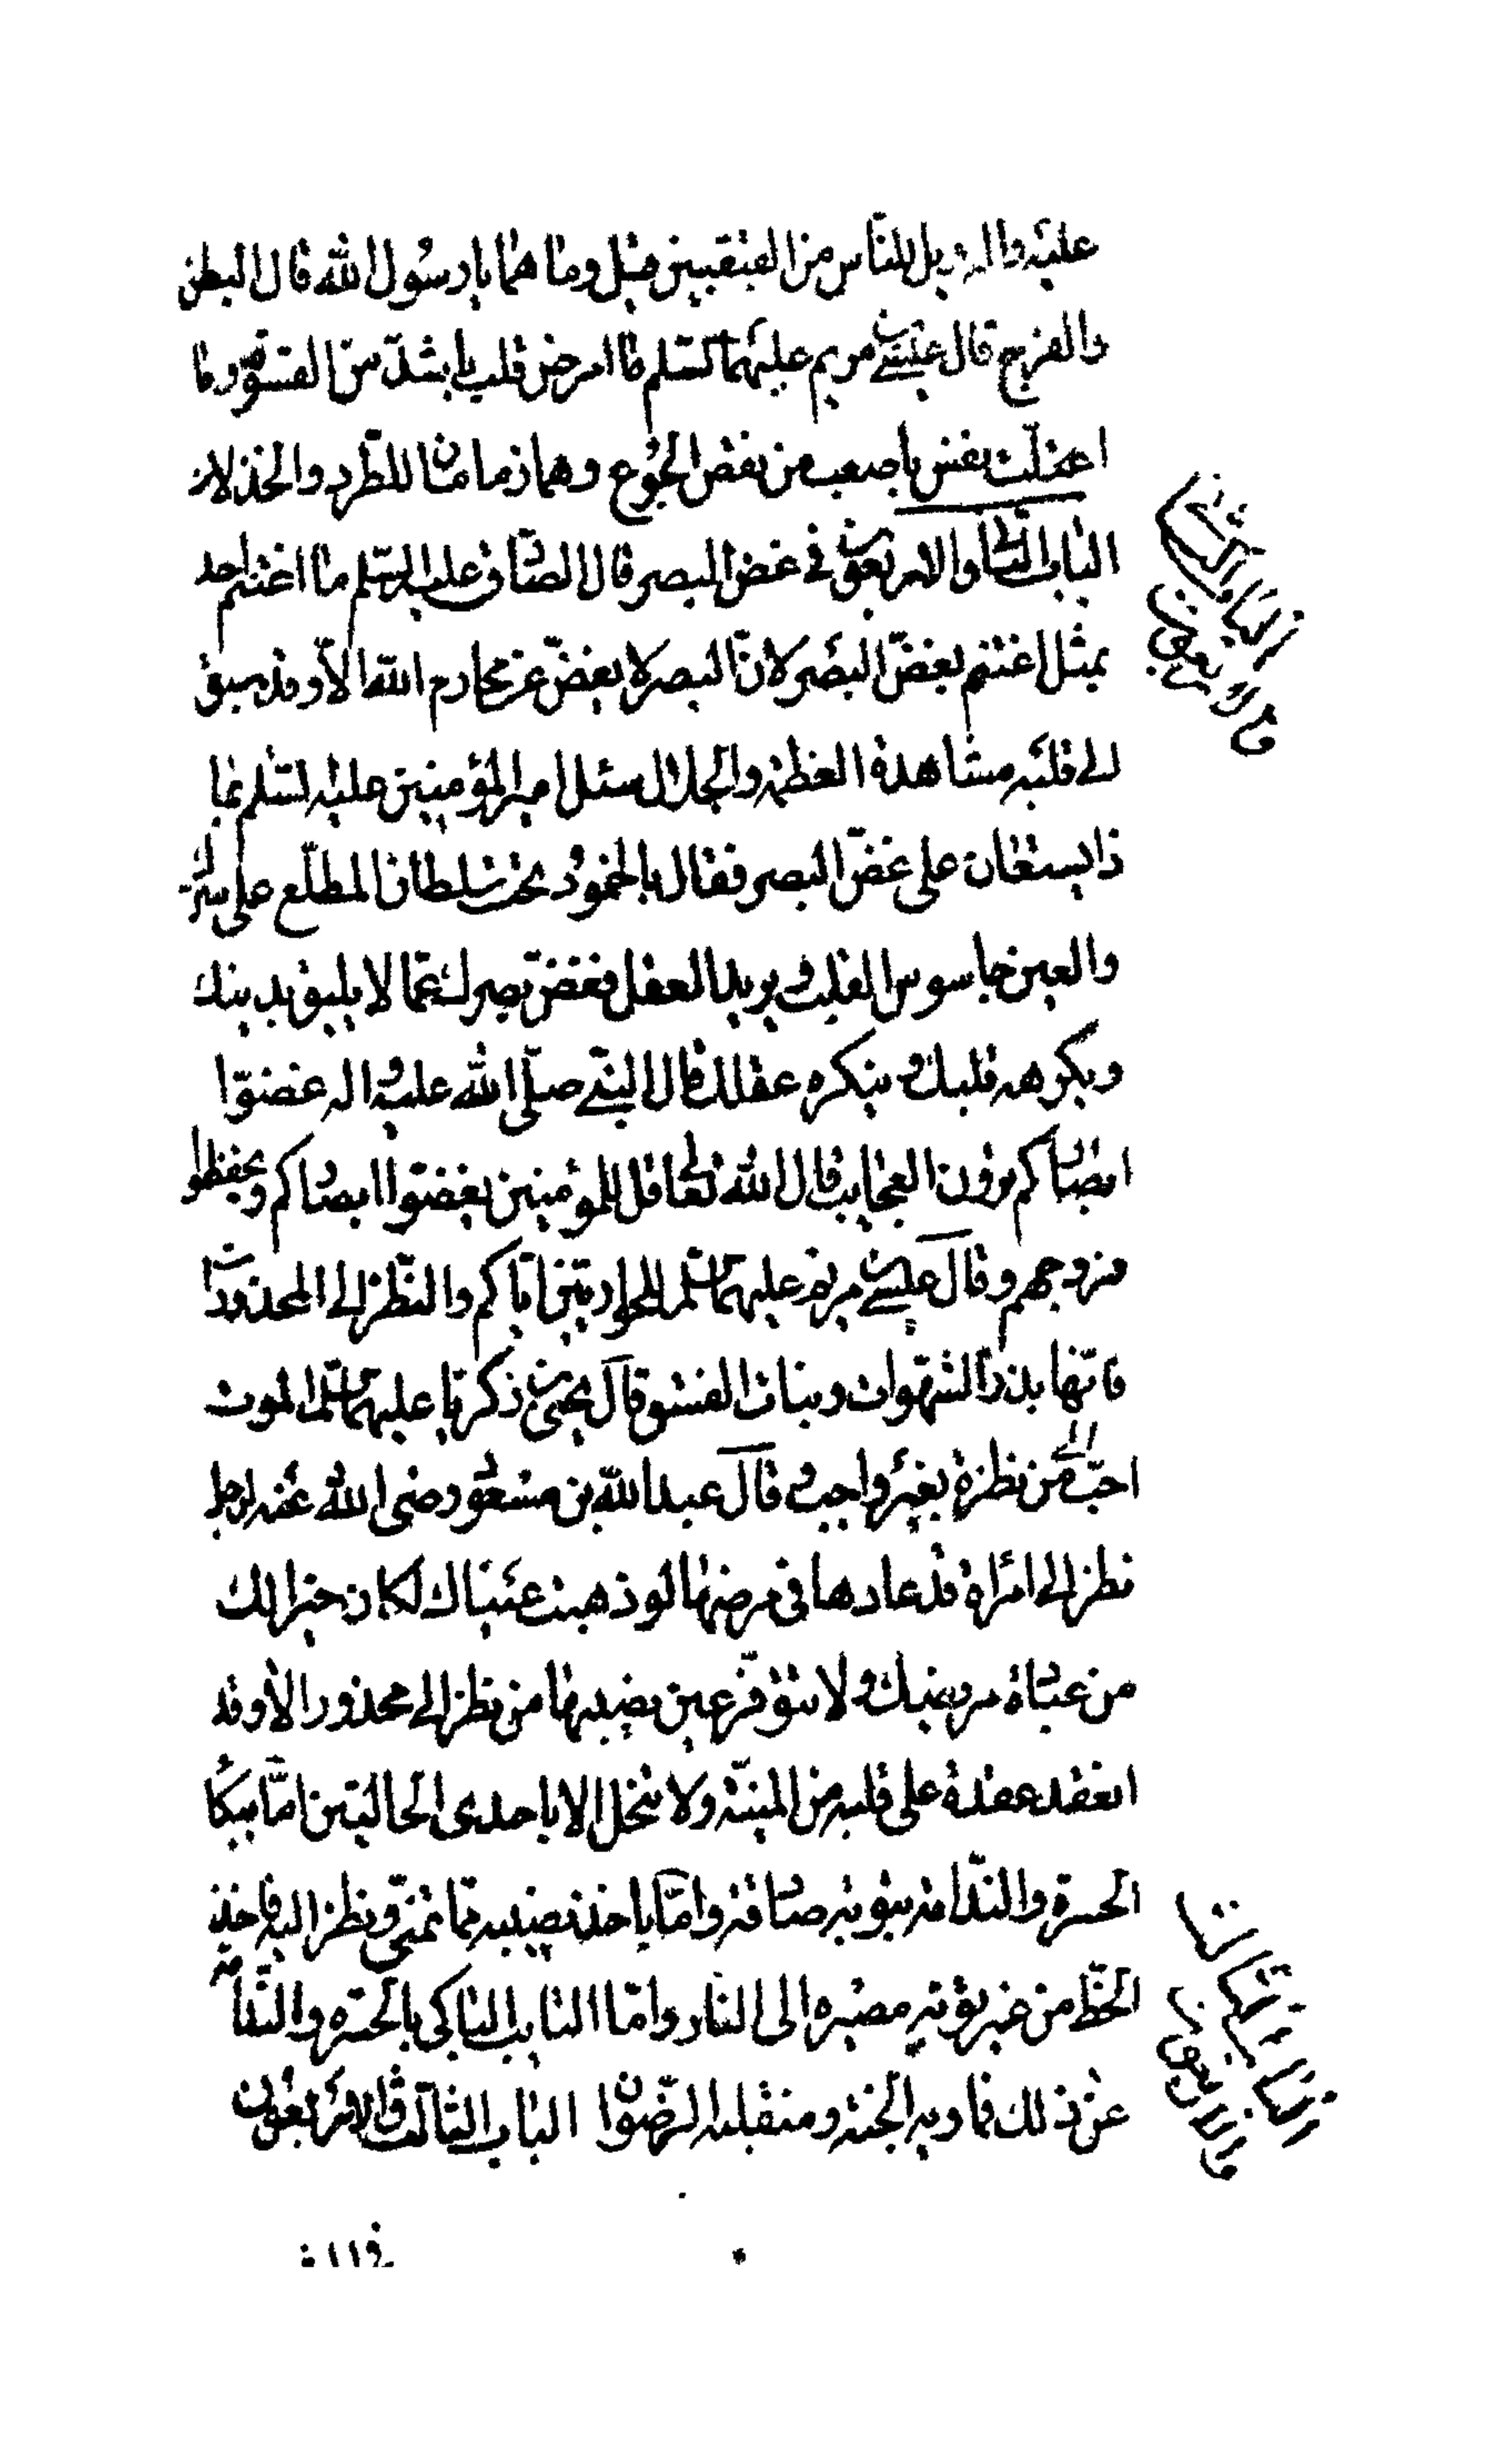 عليه واله ويل للناس من القبقبين قيل وما هما يا رسول الله قال البطن
والفرج قال عيسى بن مريم عليهما السلم ما امرض قلب باشد من القسوة وما
اعتلت نفس باصعب من نقص الجوع وهما زمامان للطرد والخذلان
الباب الثانى والاربعون فى غض البصر قال الصادق عليه السلم ما اغتنم احد
بمثل اغتنم بغض البصر لان البصر لا يغض عن محارم الله الا وقد سبق
الى قلبه مشاهدة العظمة والجلال سئل امير المؤمنين عليه السلم بما
ذا يستعان على غض البصر فقال بالخمود تحت سلطان المطلع على سرك
والعين جاسوس القلب وبريد العقل فغض بصرك عما لا يليق بدينك
ويكرهه قلبك وينكره عقلك قال النبى صلى الله عليه واله غضوا
ابصاركم ترون العجايب قال الله تعالى قل للمؤمنين يغضوا ابصاركم ويحفظوا
فروجهم وقال عيسى بن مريم عليهما السلم للحواريين اياكم والنظر الى المحذورات
فانها بذر الشهوات ونبات الفسق قال يحيى بن زكريا عليهما السلم الموت
احب الى من نظرة بغير واجب وقال عبد الله بن مسعود رضى الله عنه لرجل
نظر الى امراة قد عادها فى مرضها لو ذهبت عيناك لكان خيرا لك
من عيادة مريضك ولا تتوفر عين نصيبها من نظر الى محذور الا وقد
انعقد عقدة على قلبه من المنية ولا تنحل الا باحدى الحالتين اما ببكاء
الحسرة والندامة بتوبة صادقة واما باخذ نصيبه مما تمنى ونظر اليه فاخذ
الحظ من غير توبة مصيره الى النار واما التايب الباكى بالحسرة والندامة
عن ذلك فماويه الجنة ومنقلبه الرضوان الباب الثالث والاربعون